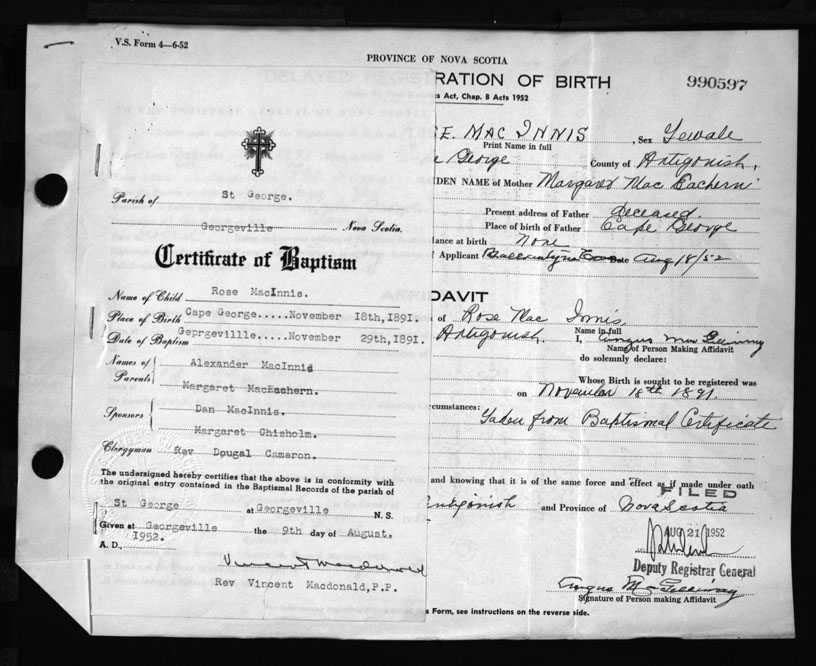 V.S. Form 4—6-52
PROVINCE OF NOVA SCOTIA
RATION OF BIRTH
990597
s Act, Chap. 8 Acts 1952
E. MAC INNIS, Sex Female
Print Name in full
George County of Antigonish,
DEN NAME of Mother Margaret Mac Eachern
Present address of Father deceased
Place of birth of Father Cape George
dance at birth None
f Applicant Date Aug 18/52
Parish of St George.
Georgeville Nova Scotia.
Certificate of Baptism
Name of Child Rose MacInnis.
Place of Birth Cape George.....November 18th,1891.
Date of Baptism Geprgevillle....November 29th,1891.
Names of Parents Alexander MacInnis
Margaret MacEachern.
Sponsors Dan MacInnis.
Margaret Chisholm.
Clergyman Rev Dougal Cameron.
The undersigned hereby certifies that the above is in conformity with
the original entry contained in the Baptismal Records of the parish of
St George at Georgeville N.S.
Given at Georgeville the 9th day of August.
A. D., 1952.
Vincent Macdonald
Rev Vincent Macdonald,P.P.
DAVIT
of Rose Mac Innis,
Name in full
Antigonish. I, Angus
Name of Person Making Affidavit
do solemnly declare:
Whose Birth is sought to be registered was
on November 18th 1891.
circumstances:
Taken from Baptismal Certificate
and knowing that it is of the same force and effect as if made under oath
FILED
Antigonish and Province of Nova Scotia
AUG 21 1952
Deputy Registrar General
Angus
Signature of Person making Affidavit
s Form, see instructions on the reverse side.